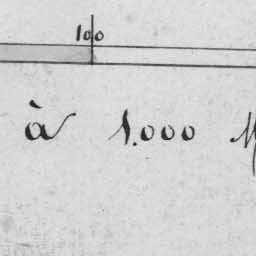 100
à 1.000 M